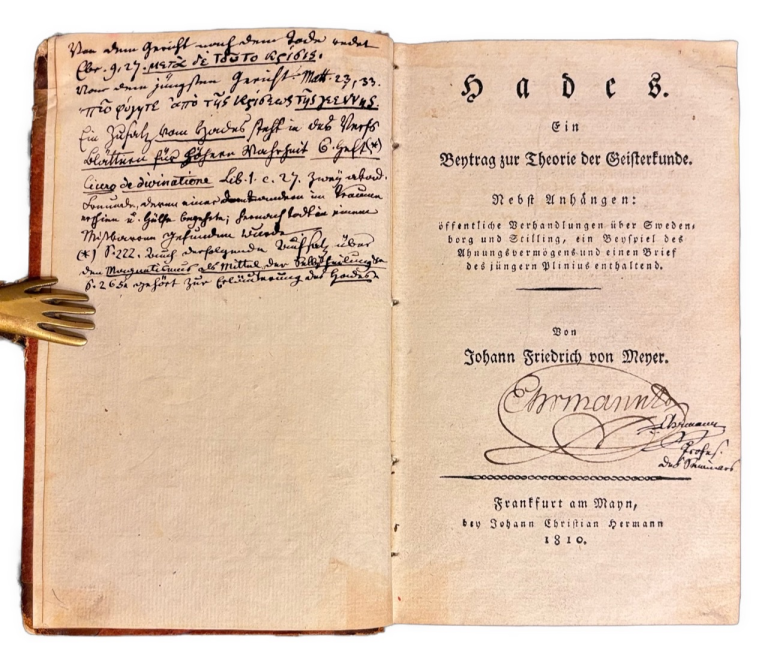 Von dem Gericht nach dem Tode redet
Ebr. 9, 27. μετὰ δὲ τοῦτο κρίσις.
Von dem jüngsten Gericht Matt. 23, 33.
πῶς φύγητε ἀπὸ τῆς κρίσεως τῆς γεέννης.
Ein Zusatz vom Hades steht in des Verfs
Blättern für höhere Wahrheit 6. Heft (*)
Cicero de divinatione Lib. 1. c. 27. Zwey
Freunde, deren einer dem andern im Traume
erschien u. Hülfe begehrte; hernach todt in einem
Mistkarren gefunden wurde.
(*) S. 222. Auch der folgende Aufsatz über
den Magnetismus als Mittel der
S. 265 gehört zur Erläuterung des Hades
Hades.
Ein
Beytrag zur Theorie der Geisterkunde.
Nebst Anhängen:
öffentliche Verhandlungen über Sweden-
borg und Stilling, ein Beyspiel des
Ahnungsvermögens und einen Brief
des jüngern Plinius enthaltend.
Von
Johann Friedrich von Meyer.
Ehrmann
Ehrmann
Profes.
des Seminars
Frankfurt am Mayn,
bey Johann Christian Hermann
1810.